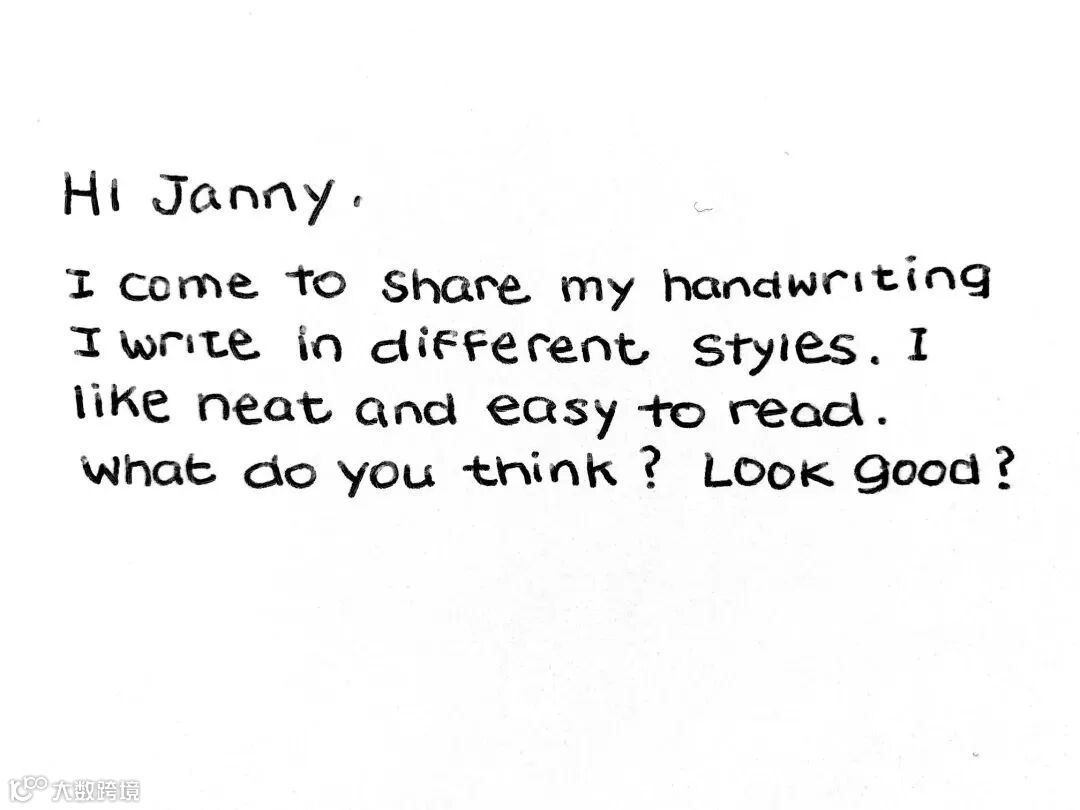 Hi Janny.
I come to share my handwriting
I write in different styles. I
like neat and easy to read.
What do you think? Look good?
大数跨境